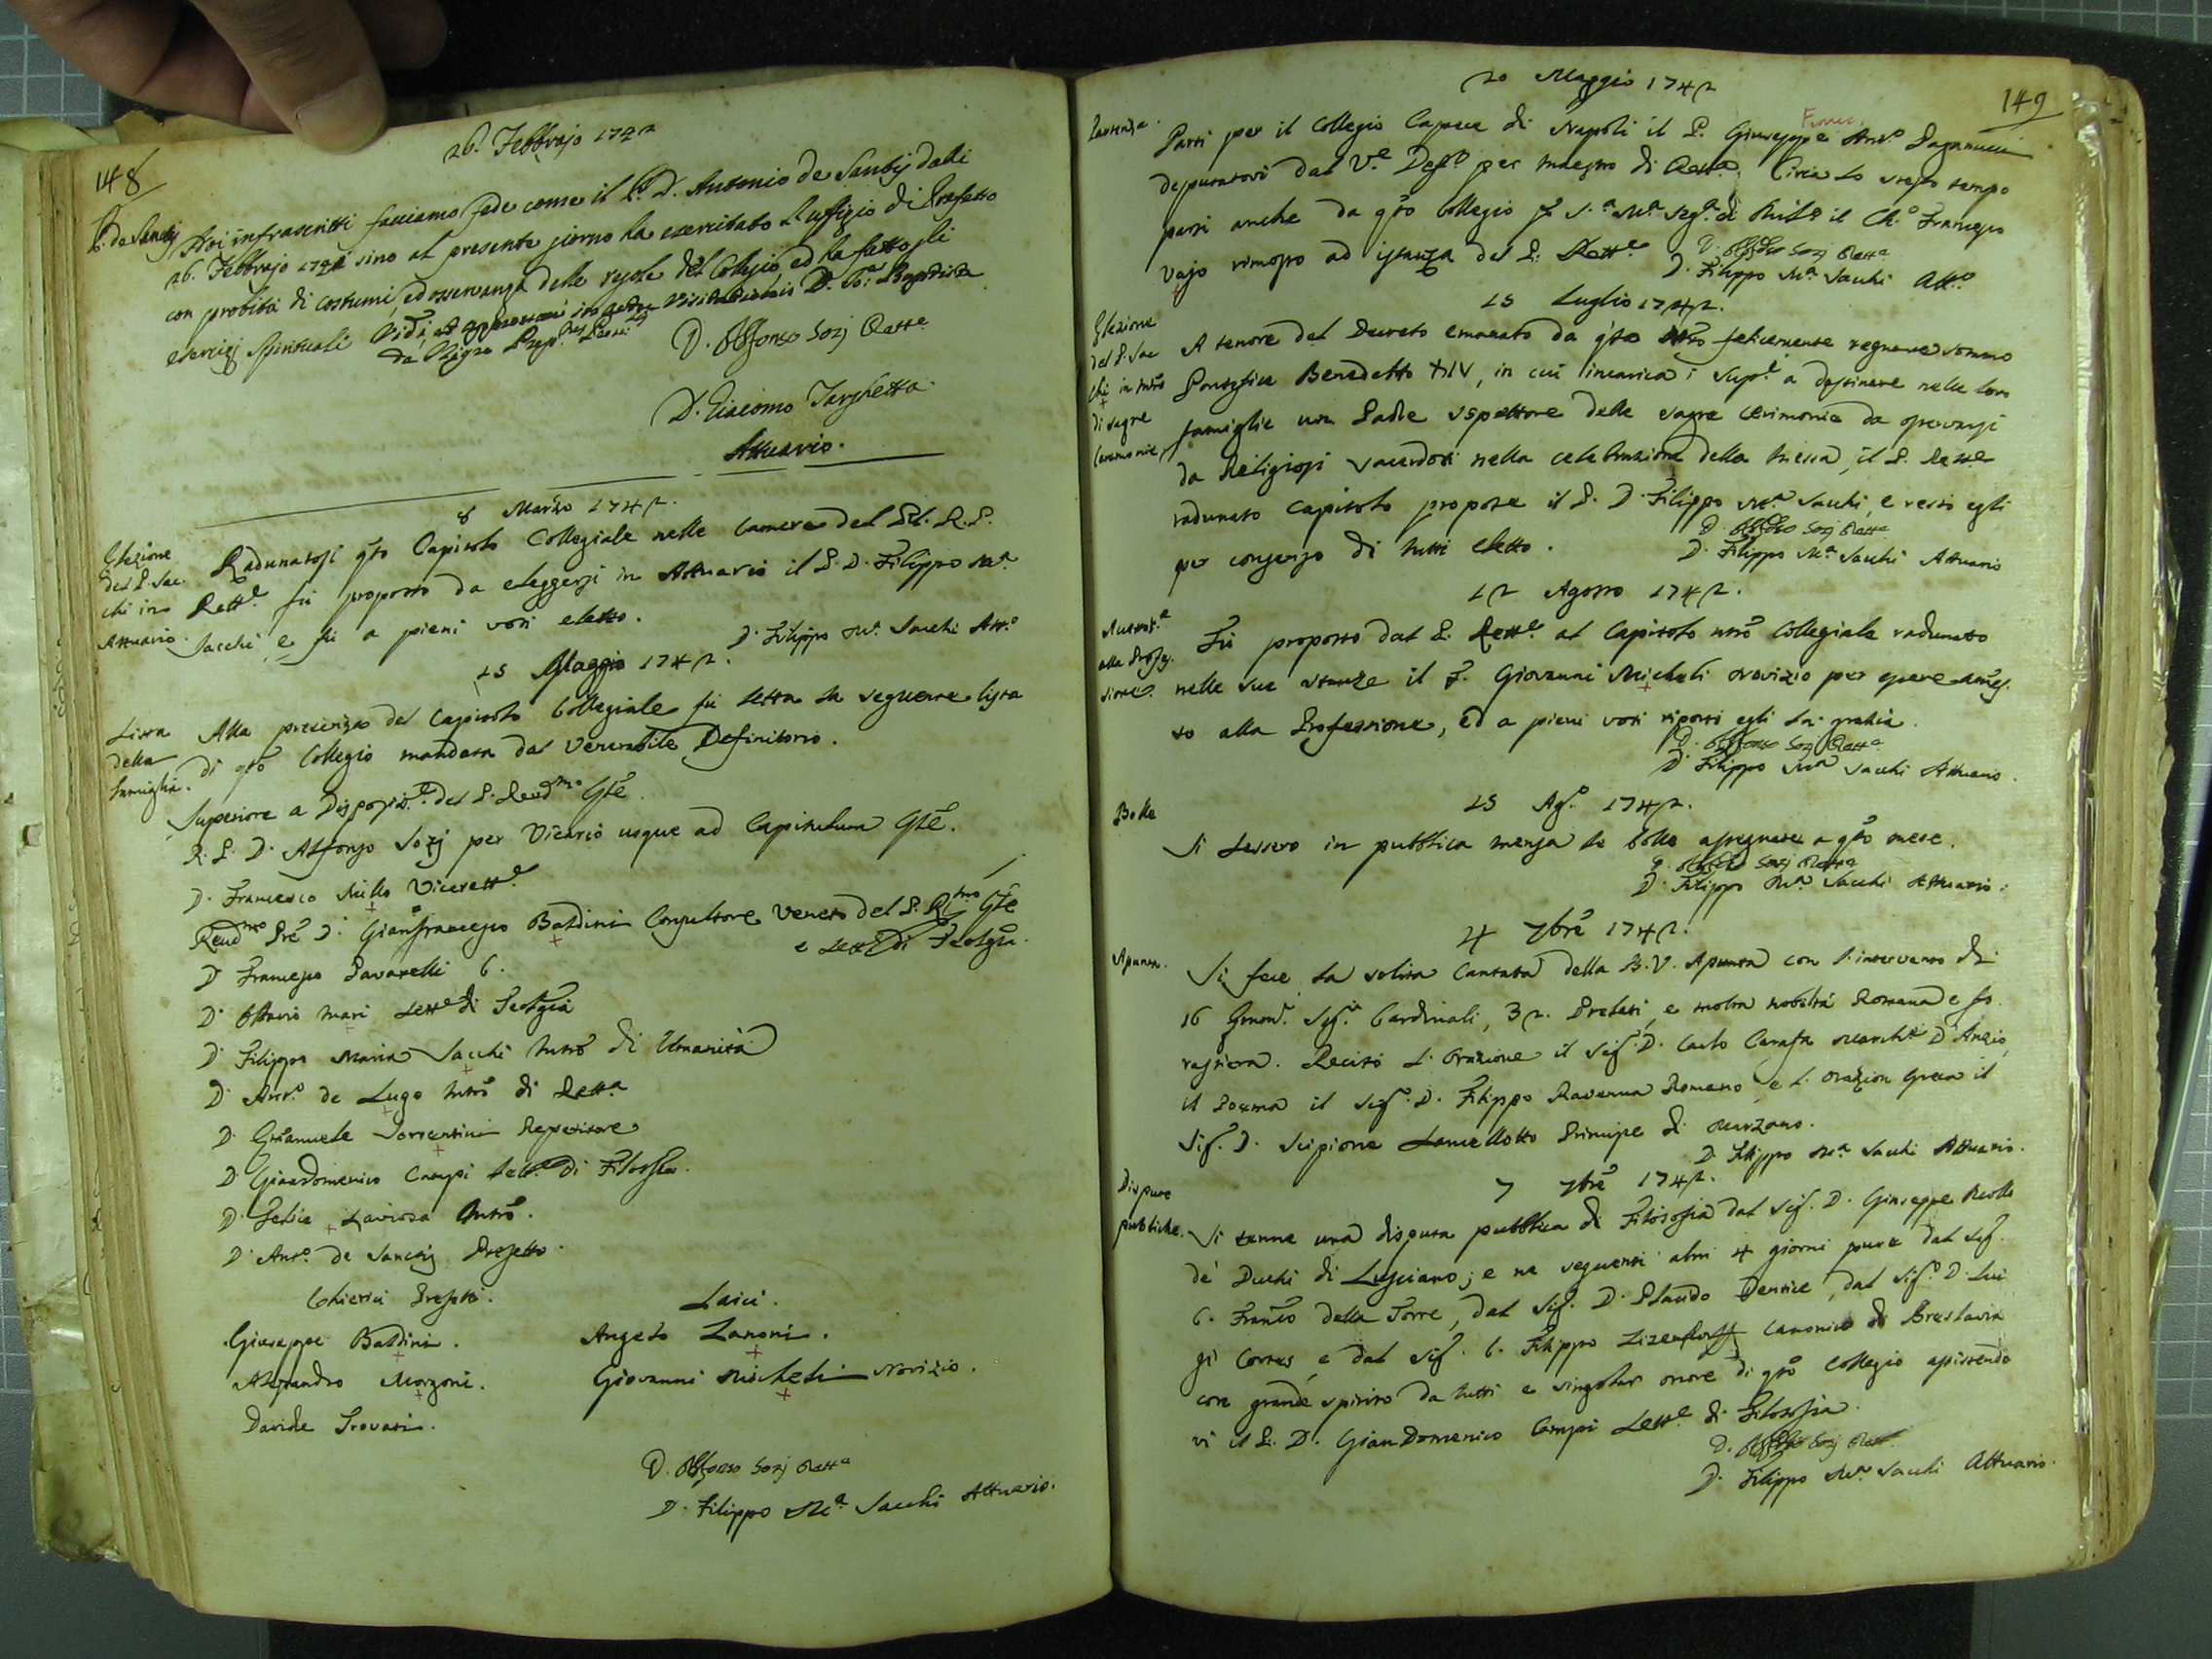 148
26. Febbrajo 1742
P. de Sanctij
Noi infrascritti facciamo fede come il P. D. Antonio de Sanctij dalli
26. Febbrajo sino al presente giorno ha esercitato l'uffizio di Prefetto
con probità di costumi, ed osservanza delle regole del Collegio, ed ha fatto gli
esercizj spirituali
Vidi, et approbavi in actu Visitationis D. Jo: Baptista
de Nigro
D. Alfonso Sozj Rett.e
D. Giacomo Targhetta
Attuario.
8 Marzo 1742.
Elezione
del P. Sac-
chi in
Attuario.
Radunatosi q̃to Capitolo Collegiale nelle Camere del M. R. P.
Rett.e fù proposto da eleggersi in Attuario il P. D. Filippo M.a
Sacchi, e fù a pieni voti eletto.
D. Filippo M.a Sacchi Att.o
15 Maggio 1742.
Lista
della
famiglia.
Alla presenza del Capitolo Collegiale fù letta la seguente lista
di q̃to Collegio mandata dal Venerabile Definitorio.
Superiore a Disposiz.e del P. Rev̄d.mo Gñle
R. P. D. Alfonso Sozj per Vicario usque ad Capitulum Gñle.
D. Francesco Millo Vicerett.e
Rev̄d.mo Prẽ D. Gianfrancesco Baldini Consultore Veneto del P. R.mo Gñle
e Lett.e di Teologia.
D. Francesco Savarelli C.
D. Ottavio Mari Lett.e di Teologia
D. Filippo Maria Sacchi Mr̃o di Umanità
D. Ant.o de Lugo Mr̃o di Rett.a
D. Emanuele Sorrentini Repetitore
D. Giandomenico Campi Lett.e di Filosofia.
D. Felice Laviosa Mr̃o.
D. Ant.o de Sanctij Prefetto.
Chierici Prefetti.
Laici.
Giuseppe Baldini.
Angelo Zanoni.
Alessandro Morzoni.
Giovanni Micheli Novizio.
Davide Trovati.
D. Alfonso Sozj Rett.e
D. Filippo M.a Sacchi Attuario.
149
20 Maggio 1742
Partenza.
Franc.
Partì per il Collegio Capece di Napoli il P. Giuseppe Ant.o Paganucci
deputatovi dal V.e Def.o per Maestro di Rett.a Circa lo stesso tempo
partì anche da q̃to Collegio il Ch.o Francesco
Vajo rimosso ad istanza del P. Rett.e
D. Alfonso Sozj Rett.e
D. Filippo M.a Sacchi Att.o
15 Luglio 1742.
Elezione
del P. Sac
chi in Mr̃o
di sagre
Ceremonie,
A tenore del Decreto emanato da q̃to felicemente regnante sommo
Pontefice Benedetto XIV, in cui incarica i Sup.i a destinare nelle loro
famiglie un Padre ispettore delle sagre Cerimonie da osservarsi
da Religiosi Sacerdoti nella celebrazione della Messa, il P. Rett.e
radunato Capitolo propose il P. D. Filippo M.a Sacchi, e restò egli
per consenso di tutti eletto.
D. Alfonso Sozj Rett.e
D. Filippo M.a Sacchi Attuario
12 Agosto 1742.
alla Profes-
sione.
Fù proposto dal P. Rett.e al Capitolo nr̃o Collegiale radunato
nelle sue stanze il F. Giovanni Micheli Novizio per essere am̃es-
so alla Professione, ed a pieni voti riportò egli la grazia.
D. Alfonso Sozj Rett.e
D. Filippo M.a Sacchi Attuario.
15 Ag.o 1742.
Bolle
Si lessero in pubblica mensa le bolle assegnate a q̃to mese.
D. Alfonso Sozj Rett.e
D. Filippo M.a Sacchi Attuario.
4 7br̃e 1742.
Assunta.
Si fece la solita Cantata della B. V. Assunta con l'intervento di
16 Sig.i Cardinali, 32. Prelati, e molta nobiltà Romana e fo-
rastiera. Recitò l'Orazione il Sig. D. Carlo Carafa March.e D'Anzio,
il Poema il Sig. D. Filippo Ravenna Romano, e l'Orazion Greca il
Sig. D. Scipione Lancellotto Principe di Marzano.
D. Filippo M.a Sacchi Attuario.
7 7br̃e 1742.
Dispute
pubbliche.
Si tenne una disputa pubblica di Filosofia dal Sig. D. Giuseppe Mollo
de' Duchi di Lusciano; e ne seguenti altri 4 giorni pure dal Sig.
C. Franc̃o della Torre, dal Sig. D. Placido Dentice, dal Sig. D. Lui
gi Correa, e dal Sig. C. Filippo Zizendorff Canonico di Breslavia
con grande spirito da tutti e singolar onore di q̃to Collegio assistendo
vi il P. D. GianDomenico Campi Lett.e di Filosofia.
D. Alfonso Sozj Rett.e
D. Filippo M.a Sacchi Attuario.